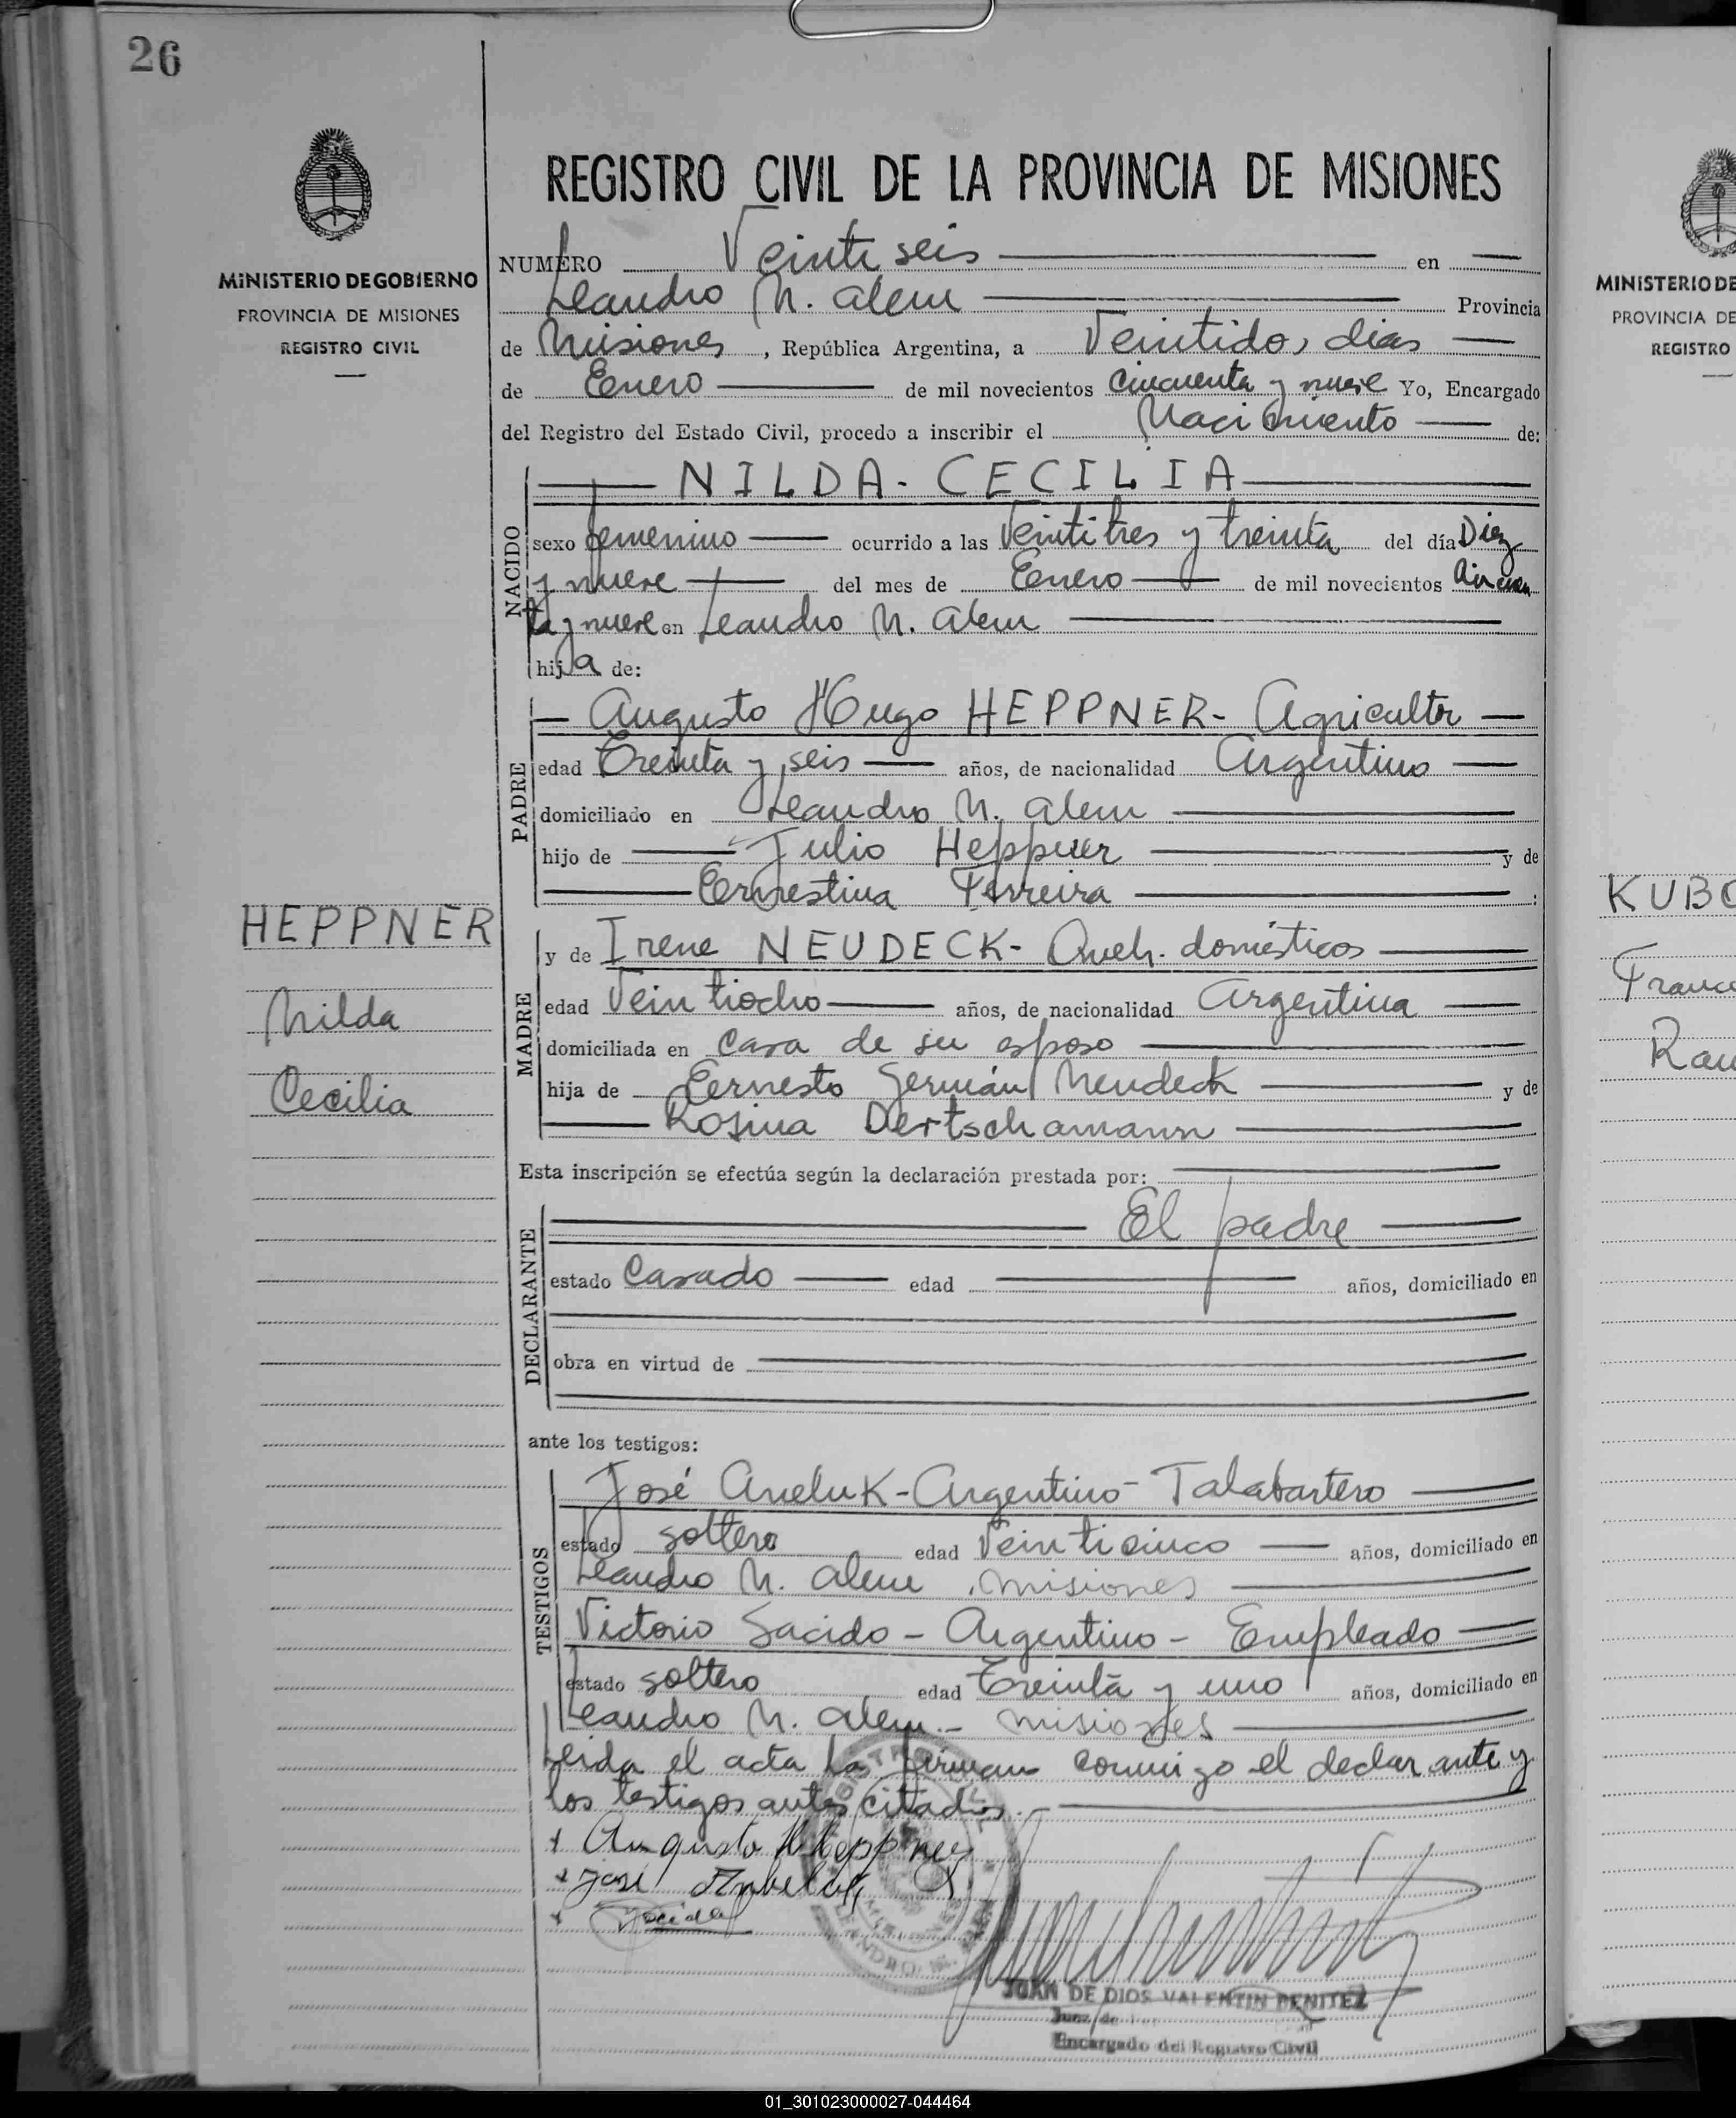 26
MINISTERIO DE GOBIERNO
PROVINCIA DE MISIONES
REGISTRO CIVIL
HEPPNER
Nilda
Cecilia
REGISTRO CIVIL DE LA PROVINCIA DE MISIONES
NUMERO Veinte seis en
Leandro N. Alem Provincia
de Misiones, República Argentina, a Veintidos dias
de Enero de mil novecientos cincuenta y nueve Yo, Encargado
del Registro del Estado Civil, procedo a inscribir el Nacimiento de:
NACIDO
NILDA - CECILIA
sexo femenino ocurrido a las Veintitres y treinta del día Diez
y nueve del mes de Enero de mil novecientos cincuen
ta y nueve en Leandro N. Alem
hija de:
PADRE
Augusto Hugo HEPPNER - Agricultor
edad Treinta y seis años, de nacionalidad Argentino
domiciliado en Leandro N. Alem
hijo de Julio Heppner y de
Ernestina Ferreira :
MADRE
y de Irene NEUDECK - Queh. domésticos
edad Veintiocho años, de nacionalidad Argentina
domiciliada en casa de su esposo
hija de Ernesto Germán Neudeck y de
Rosina Dertschamann
Esta inscripción se efectúa según la declaración prestada por:
DECLARANTE
El padre
estado Casado edad años, domiciliado en
obra en virtud de
ante los testigos:
TESTIGOS
José Aneluk - Argentino - Talabartero
estado soltero edad Veinticinco años, domiciliado en
Leandro N. Alem, misiones
Victorio Sacido - Argentino - Empleado
estado soltero edad Treinta y uno años, domiciliado en
Leandro N. Alem - misiones
Leida el acta la firman conmigo el declarante y
los testigos antes citados.
Augusto H Heppner
José
JUAN DE DIOS VALENTIN BENITEZ
Juez de
Encargado del Registro Civil
MINISTERIO DE
PROVINCIA DE
REGISTRO
KUB
01_301023000027-044464